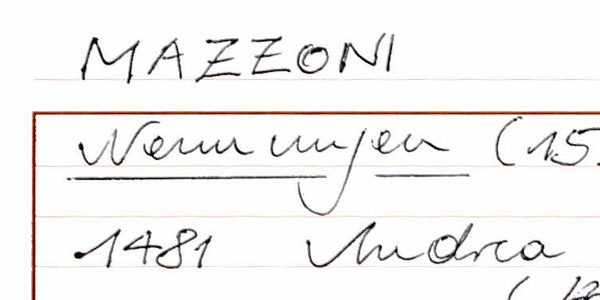 MAZZONI
Nennungen (15
1481 Andrea